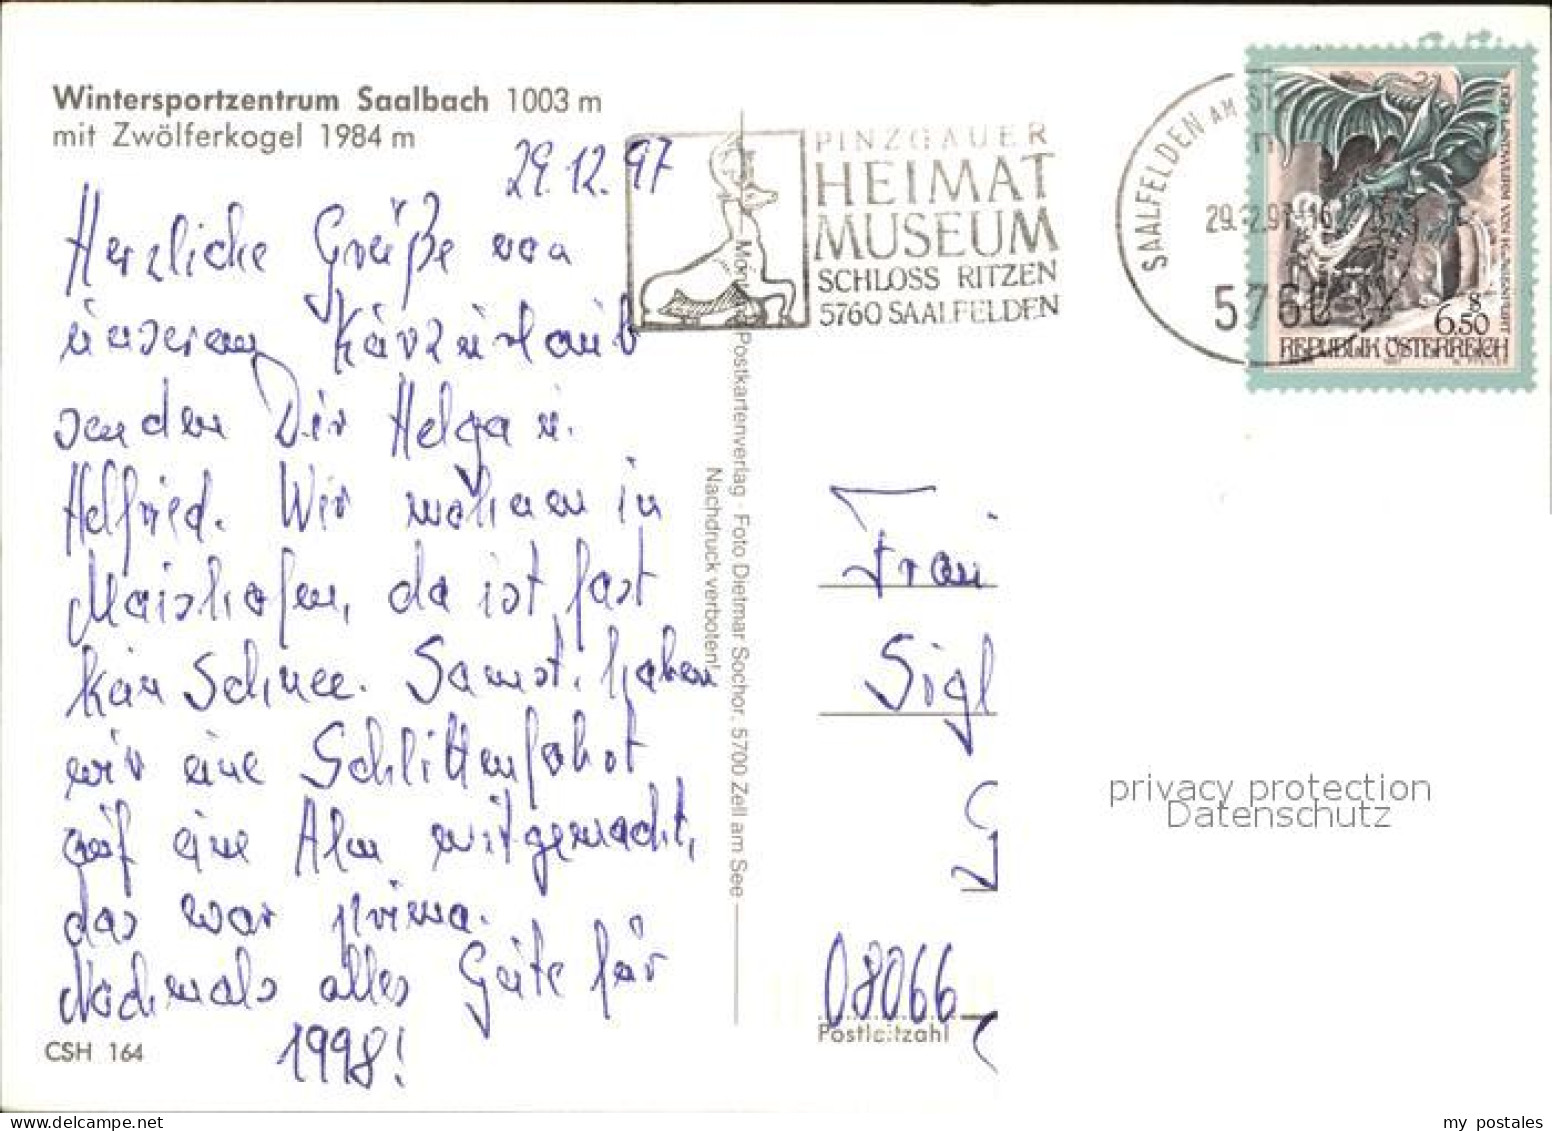 Wintersportzentrum Saalbach 1003 m
mit Zwölferkogel 1984 m
29.12.97
Herzliche Grüße von
unserem Kurzurlaub
senden Dir Helga u.
Helfried. Wir wohnen in
Maishofen, da ist fast
kein Schnee. Samst. haben
wir eine Schlittenfahrt
auf eine Alm mitgemacht,
das war prima.
Nochmals alles Gute für
1998!
CSH 164
Postkartenverlag · Foto Dietmar Sochor, 5700 Zell am See
Nachdruck verboten!
PINZGAUER
HEIMAT
MUSEUM
SCHLOSS RITZEN
5760 SAALFELDEN
SAALFELDEN AM
5760
DER LINDWURM VON KLAGENFURT
S
6.50
REPUBLIK ÖSTERREICH
Frau
Sigl
08066
Postleitzahl
privacy protection
Datenschutz
my postales